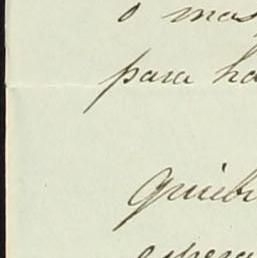 o mas
para ha
Quieb
espera